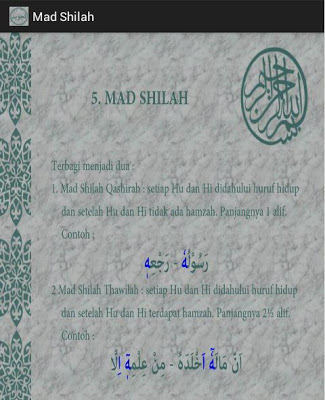 Mad Shilah
5. MAD SHILAH
Terbagi menjadi dua :
1. Mad Shilah Qashirah : setiap Hu dan Hi didahului huruf hidup
dan setelah Hu dan Hi tidak ada hamzah. Panjangnya 1 alif.
Contoh ;
رَسُوْلُهٗ - رَجْعِهٖ
2 Mad Shilah Thawilah : setiap Hu dan Hi didahului huruf hidup
dan setelah Hu dan Hi terdapat hamzah. Panjangnya 2½ alif.
Contoh :
اَنَّ مَالَهٗٓ اَخْلَدَهٗ - مِنْ عِلْمِهٖٓ اِلَّا